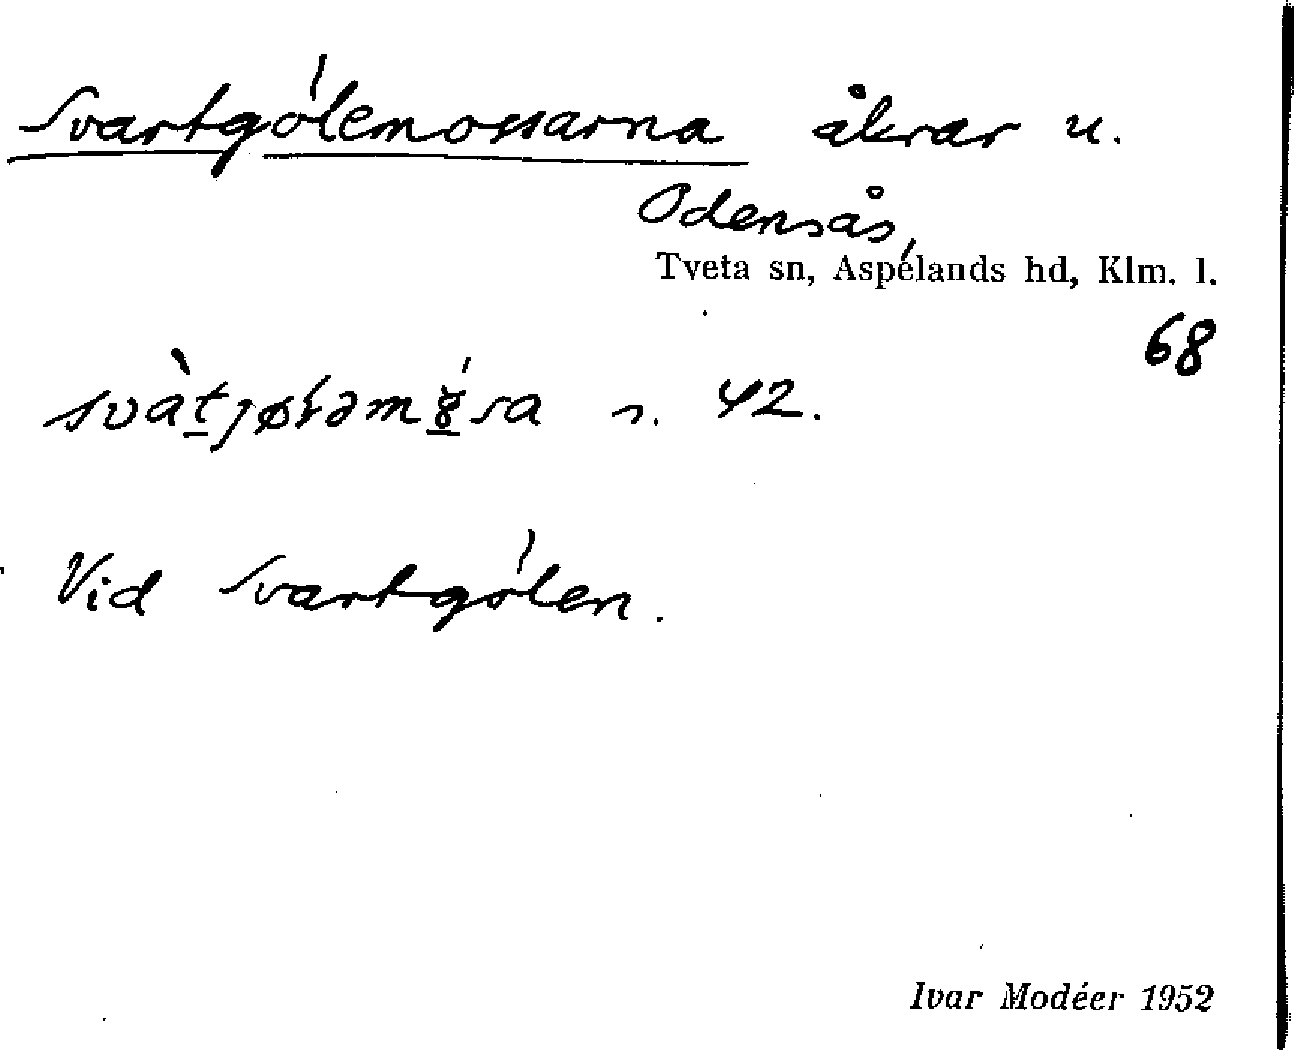 Svartgólemossarna åkrar u.
Odensås,
Tveta sn, Aspelands hd, Klm. l.
68
s. 42.
Vid Svartgólen.
Ivar Modéer 1952